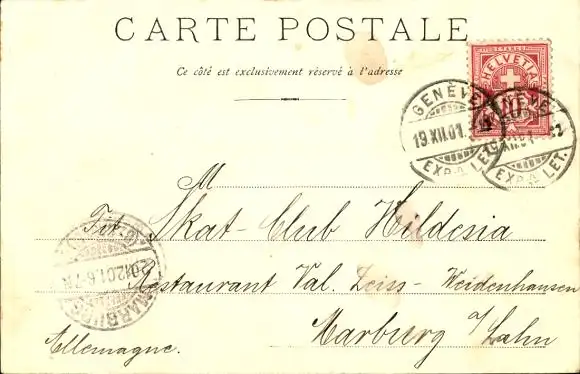 CARTE POSTALE
Ce côté est exclusivement réservé à l'adresse
HELVETIA
10
GENÈVE
19.XII.01.
EXP. LET.
GENÈVE
EXP. LET.
M
Skat-Club Hildesia
MARBURG
20.12.01.6-7N
Restaurant Val. Zeiss-Weidenhausen
Marburg a/Lahn
Allemagne.